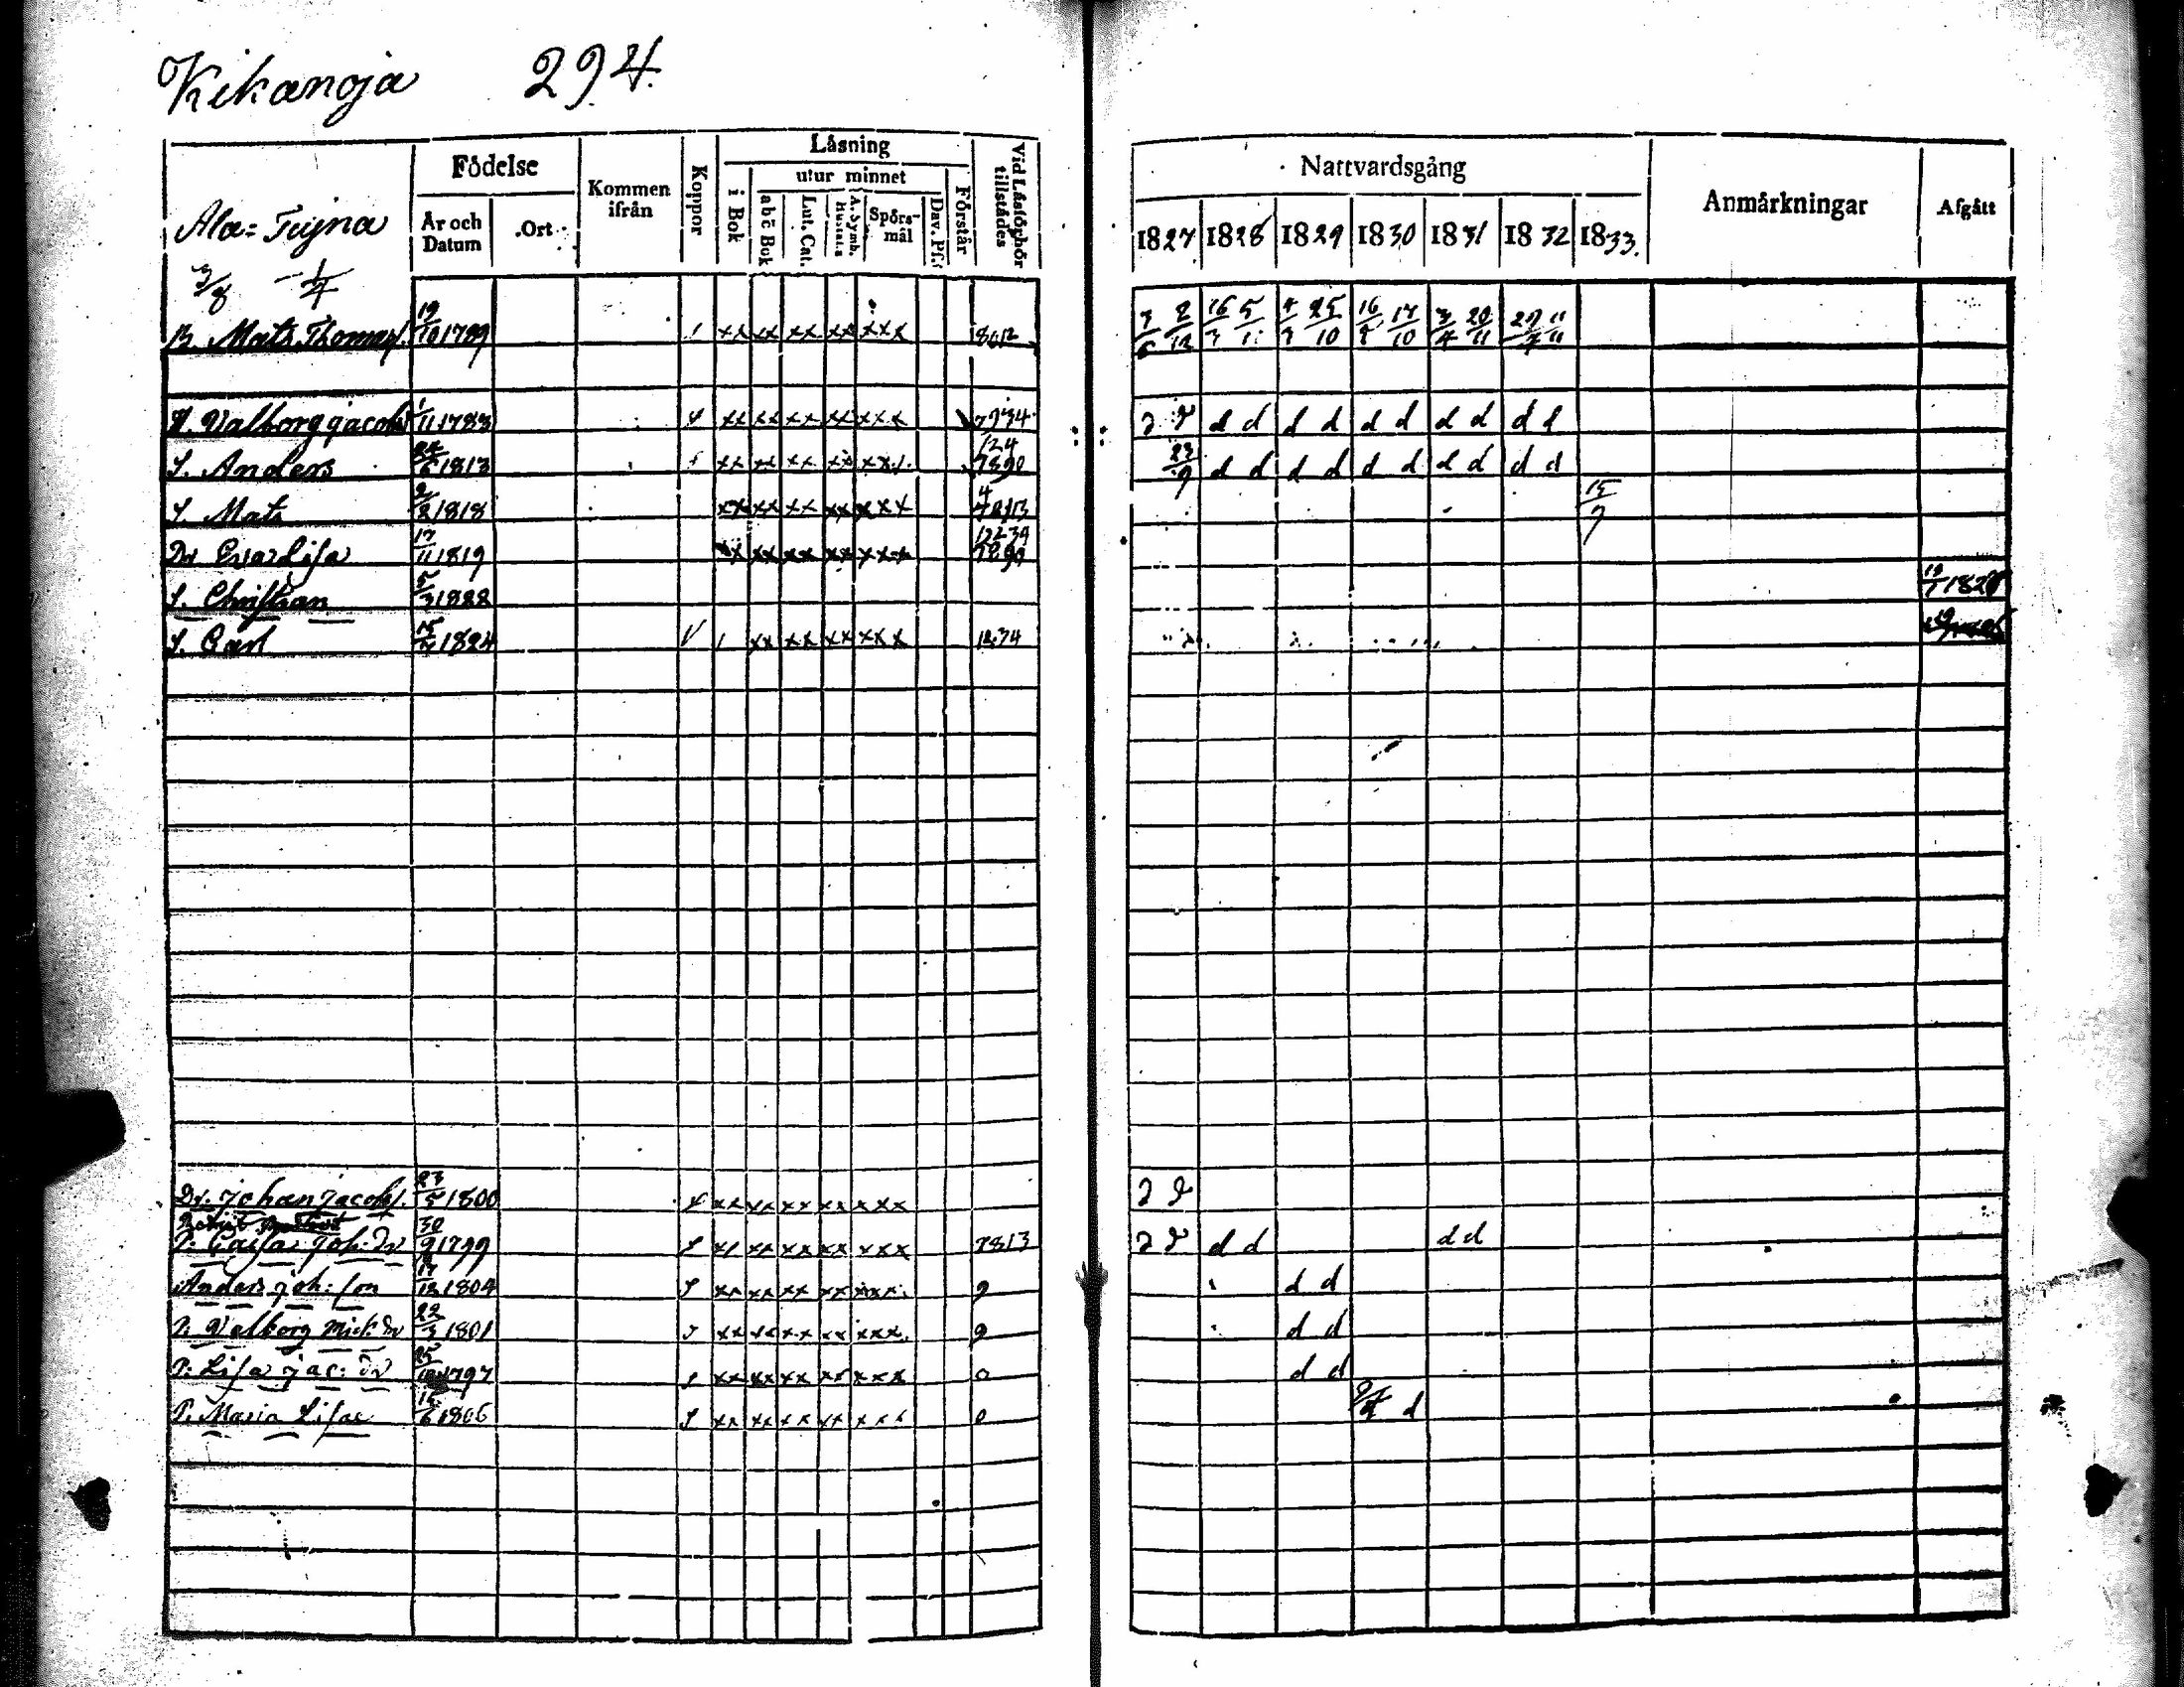 Kikanoja 294.
Födelse
Kommen ifrån
Koppor
Läsning
utur minnet
i Bok
abc Bok
Lut. Cat.
A. Symb.
Hustafl.
Spörsmål
Dav. Ps.
Förstår
Vid Läsförhör tillstädes
År och Datum
Ort
Nattvardsgång
1827 1828 1829 1830 1831 1832 1833.
Anmärkningar
Afgått
Ala=Tujna
3/8 1/4
B. Mats Thomass. 19/10 1789 xx xx xx xx xxx 16/3 5/11 4/3 25/10 16/ 17/10 3/4 20/11
H. Valborg Jacobs 1/11 1783 xx xx xx xx xxx 7934 d d d d d d d d d d
S. Anders 24/6 1813 xx xx xx xx 124 7890 23/9 d d d d d d d d d d
S. Mats 2/2 1818 xx xx xx xx xxx 15/7
Dr Eva Lisa 17/11 1819 xx xx xx xx xxx
S. Christian 5/3 1822
S. Carl 15/ 1824 xx xx xx xxx 1234
Dr. Johan Jacobs. 23/5 1800 xx xx xx xx xxx
P: Caisa Joh: dr 30/9 1799 xx xx xx xxx 7813 d d d d
Anders Joh: son 17/12 1804 xx xx xx xx xxx 9 d d
P: Valborg Mich: dr 22/3 1801 xx xx xx xx xxx 9 d d
P: Lisa Jac: dr 25/10 1797 xx xx xx xx xxx 0 d d
P. Maria Lisac 16/6 1806 xx xx xx xx xxx 0 d